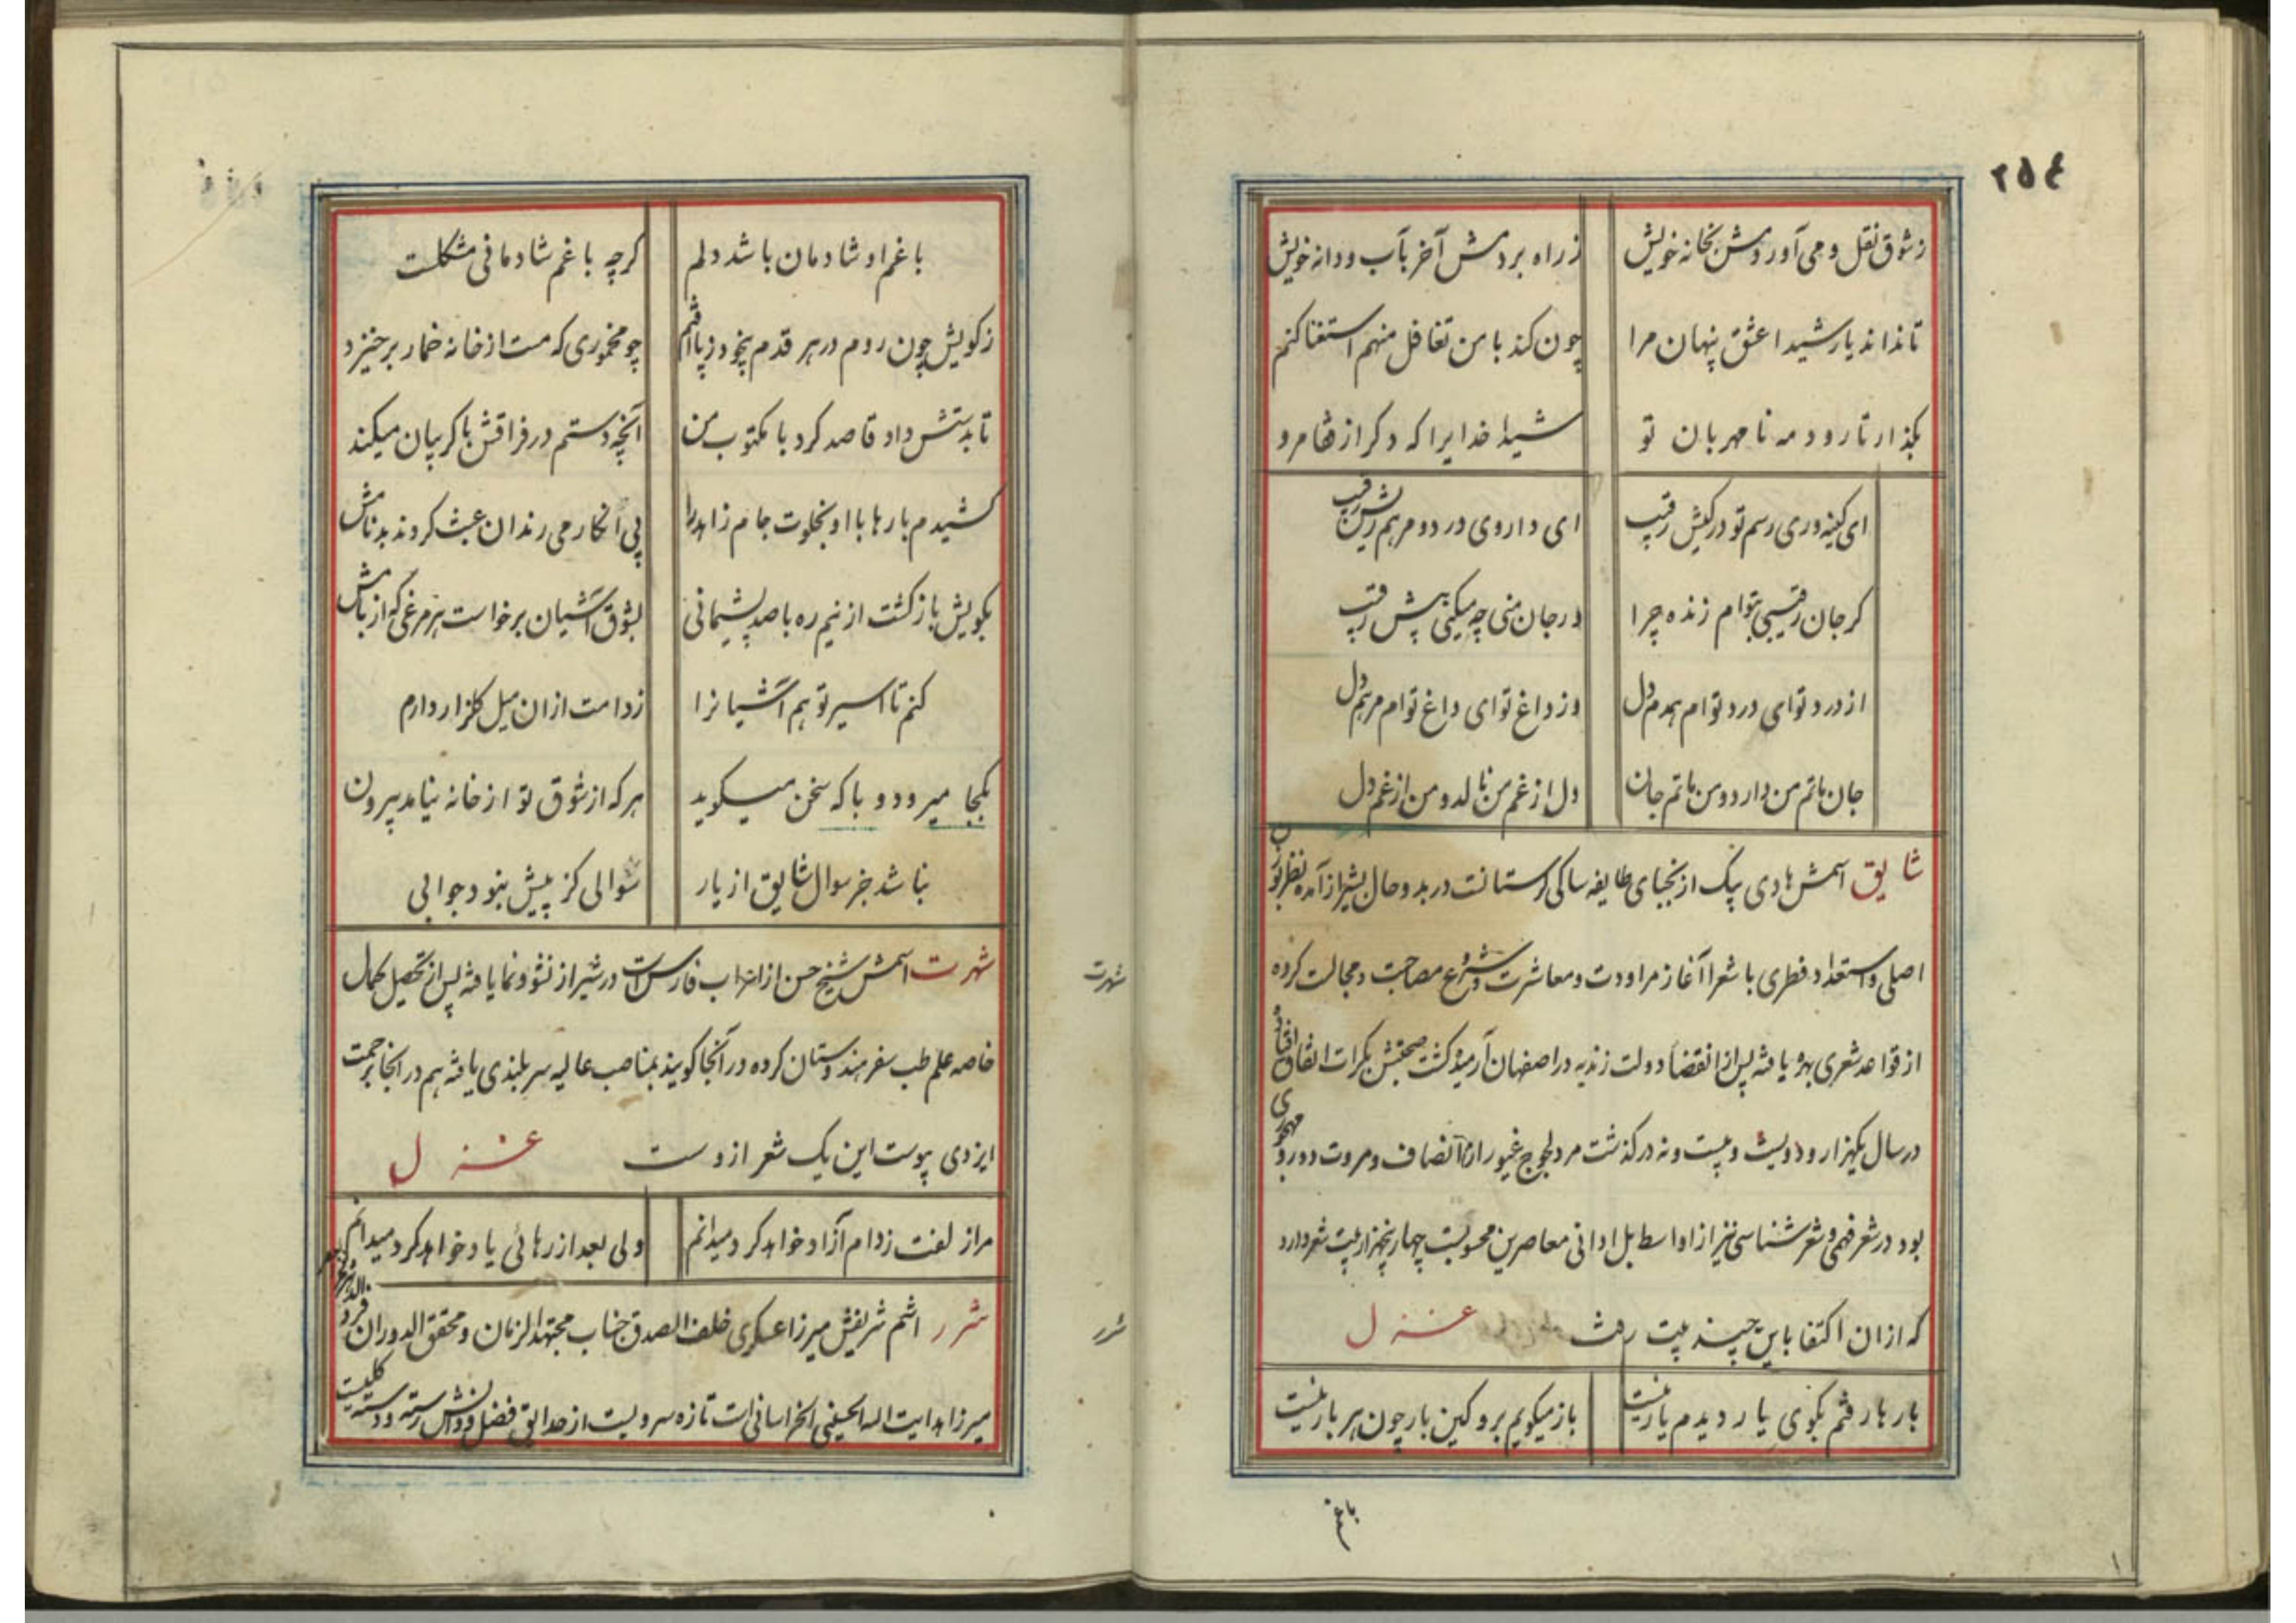 ۲۵۴
ز شوق نقل و می آوردمش بخانه خویش
ز راه بردمش آخر بآب و دانه خویش
تا نداند یار شیدا عشق پنهان مرا
چون کند با من تغافل منهم استغنا کنم
بگذار تا رود مه نا مهربان تو
شیدا خدایرا که دگر از قفا مرو
ای کینه وری رسم تو در کیش رقیب
ای داروی درد و مرهم ریش رقیب
گر جان رقیبی بتوام زنده چرا
در جان منی چه میکنی پیش رقیب
از درد تو ای درد توام همدم دل
وز داغ تو ای داغ توام مرهم دل
جان ماتم من دارد و من ماتم جان
دل از غم من نالد و من از غم دل
شایق اسمش هادی بیک از نجبای طایفه ساکی لرستانست در بدو حال بشیراز آمده نظر بقرب
اصلی و استعداد فطری با شعرا آغاز مراودت و معاشرت و شروع مصاحبت و مجالست کرده
از قواعد شعری بهره یافته پس از انقضا دولت زندیه در اصفهان آرمیده گشت صحبتش بکرات اتفاق افتاد و
در سال یکهزار و دویست و بیست و نه درگذشت مرد لجوج غیور از انصاف و مروت دور و
بود در شعر فهمی و شعر شناسی نیز از اواسط بل ادانی معاصرین محسوبست چهار پنجهزار بیت شعر دارد
که از ان اکتفا باین چند بیت رفت غزل
بارها رفتم بکوی یار دیدم یار نیست
باز میگویم برو کین بار چون هر بار نیست
با غم او شادمان باشد دلم
گرچه با غم شادمانی مشکلست
ز کویش چون روم در هر قدم بیخود ز پا افتم
چو مخموری که مست از خانه خمار برخیزد
تا بدستش داد قاصد کرد با مکتوب من
آنچه دستم در فراقش با گریبان میکند
کشیدم بارها با او بخلوت جام زاهد را
پی انکار می رندان عبث کردند بدنامش
بکویش باز گشت از نیم ره با صد پشیمانی
بشوق آشیان برخاست هر مرغی که از بامش
کنم تا اسیر تو هم آشیانرا
ز دامت از ان میل گلزار دارم
بکجا میرود و با که سخن میگوید
هر که از شوق تو از خانه نیاید بیرون
نباشد جز سوال شایق از یار
سوالی کز پیش نبود جوابی
شهرت اسمش شیخ حسن از اعراب فارس است در شیراز نشو و نما یافته پس از تحصیل کمال
خاصه علم طب سفر هندوستان کرده در آنجا گویند بمناصب عالیه سربلندی یافته هم در انجا برحمت
ایزدی پیوست این یک شعر ازوست غزل
مرا زلفت ز دام آزاد خواهد کرد میدانم
ولی بعد از رهائی یاد خواهد کرد میدانم
شرر اسم شریفش میرزا عسکری خلف الصدق جناب مجتهد الزمان و محقق الدوران فرید
میرزا هدایت الله الحسینی الخراسانی است تازه سرویست از حدایق فضل و دانش رسته و دسته گلیست
شهرت
شرر